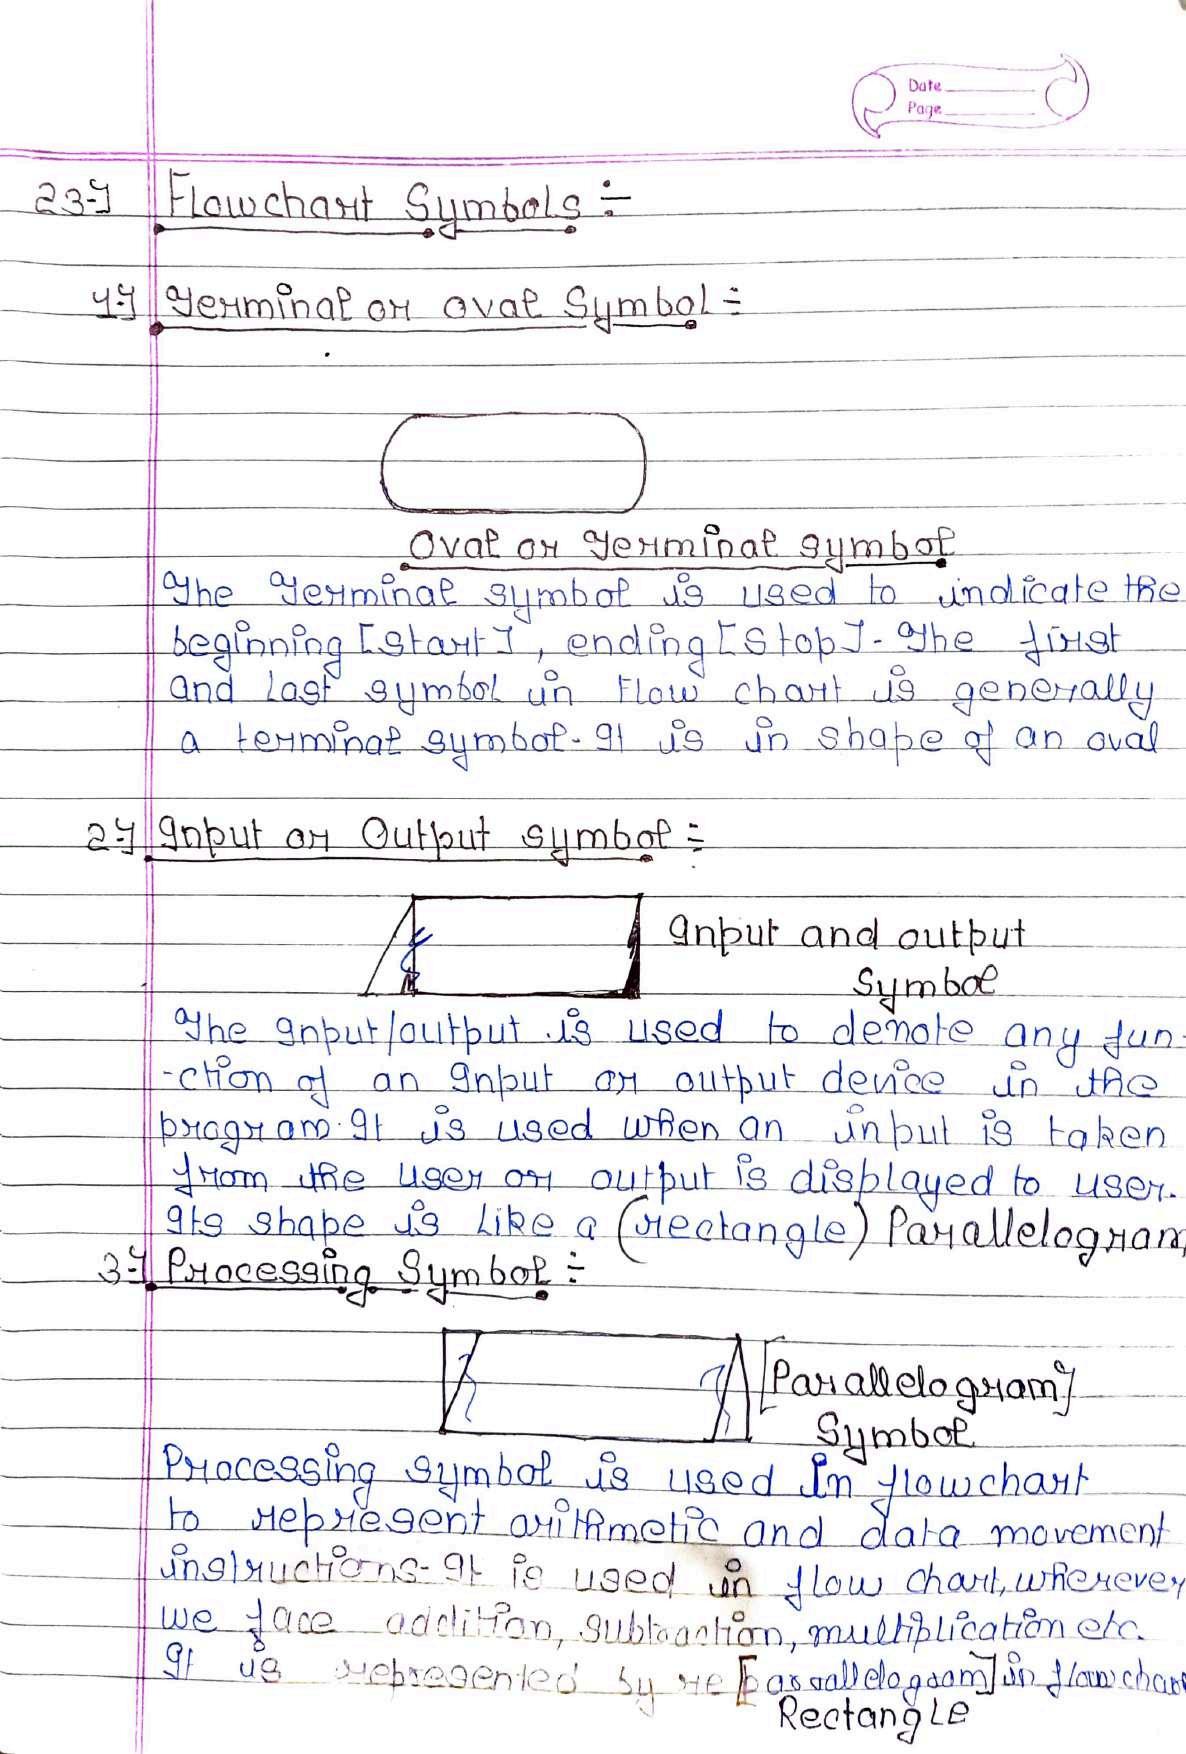 Date
Page
23-} Flowchart Symbols ÷
1-} Terminal or oval Symbol ÷
Oval or Terminal symbol
The Terminal symbol is used to indicate the
beginning [start], ending [stop]. The first
and last symbol in Flow chart is generally
a terminal symbol. It is in shape of an oval
2-} Input or Output symbol ÷
Input and output
Symbol
The Input/output is used to denote any fun-
-ction of an Input or output device in the
program. It is used when an input is taken
from the user or output is displayed to user.
Its shape is like a (rectangle) Parallelogram,
3-} Processing Symbol ÷
[Parallelogram]
Symbol
Processing symbol is used in flowchart
to represent arithmetic and data movement
instructions. It is used in flow chart, wherever
we face addition, subtraction, multiplication etc.
It is represented by re [parallelogram] in flowchart
Rectangle